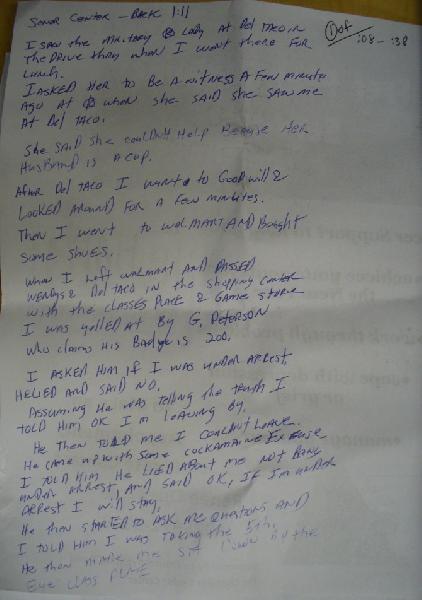 Senor Center - Back 1:11
Dot
:08 - :38
I saw the military lady At Del Taco in
The Drive thru when I went there For
Lunch.
I ASKED Her to Be A witness A Few minutes
Ago At when she SAID she SAW me
At Del TACO.
She SAID she couldn't Help Because Her
HusBAND is A cop.
After Del TACO I went to Goodwill &
Looked Around For A Few minutes.
Then I went to WALMART AND Bought
some shoes.
when I left walmart AND PASSED
wendys & Del TACO in the shopping center
with the CLASSES PLACE & GAME store
I was yelled at By G. PETERSON
who claims His Badge is 200.
I ASKED Him if I was under Arrest.
HE LIED AND SAID NO.
Assuming He was telling the truth I
Told Him OK I'm leaving By.
He Then Told me I couldn't LEAVE.
He came up with some cockamamie Excuse
I TOLD Him He LIED About me not Being
under Arrest, AND SAID OK, IF I'm under
Arrest I will stay.
He then STARTED to Ask me Questions AND
I TOLD Him I was TAKING the 5th.
He then made me sit Down By the
Eye CLASS PLACE